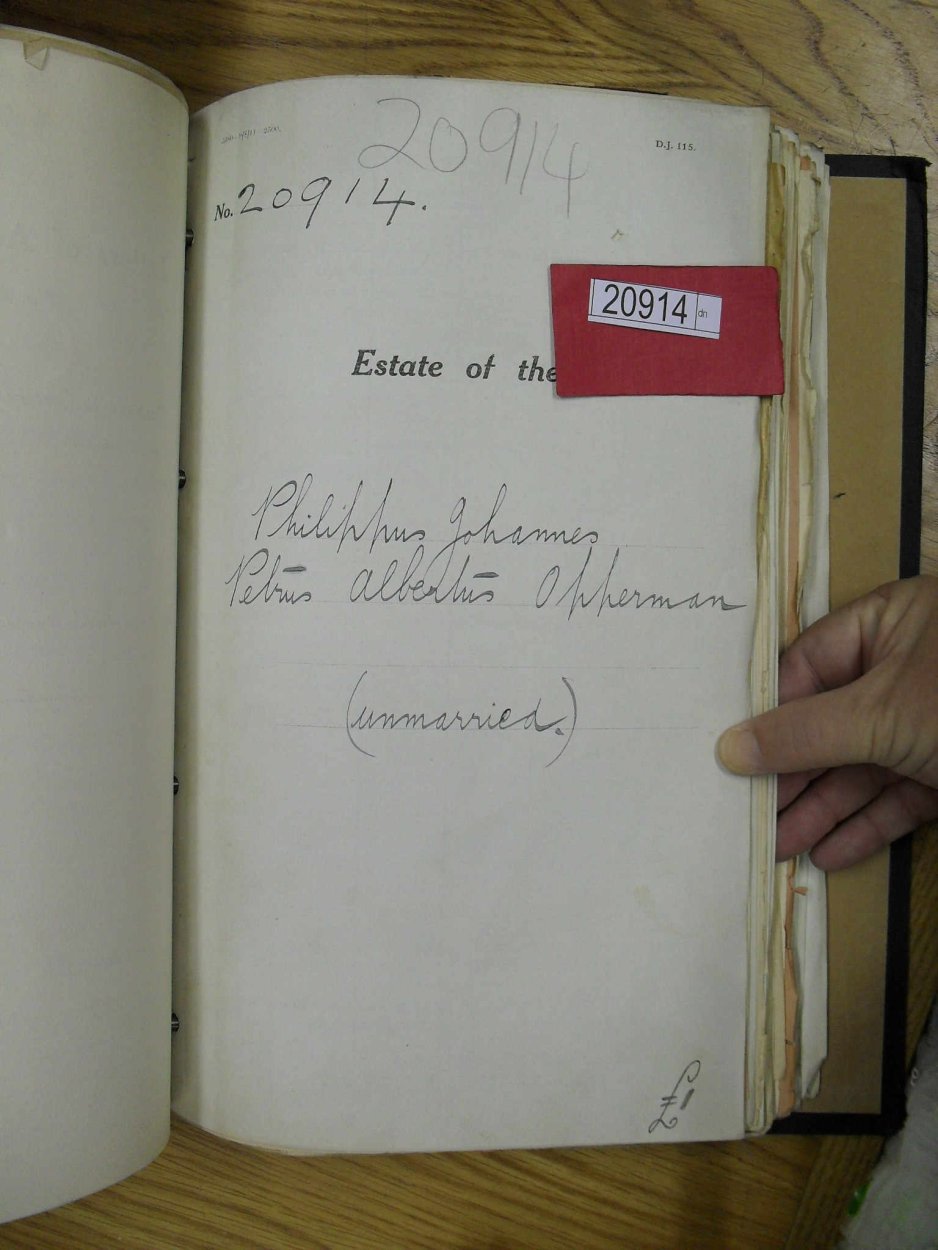 20914
D.J. 115.
No. 20914.
20914 dn
Estate of the
Philippus Johannes
Petrus Albertus Opperman
(unmarried.)
£1